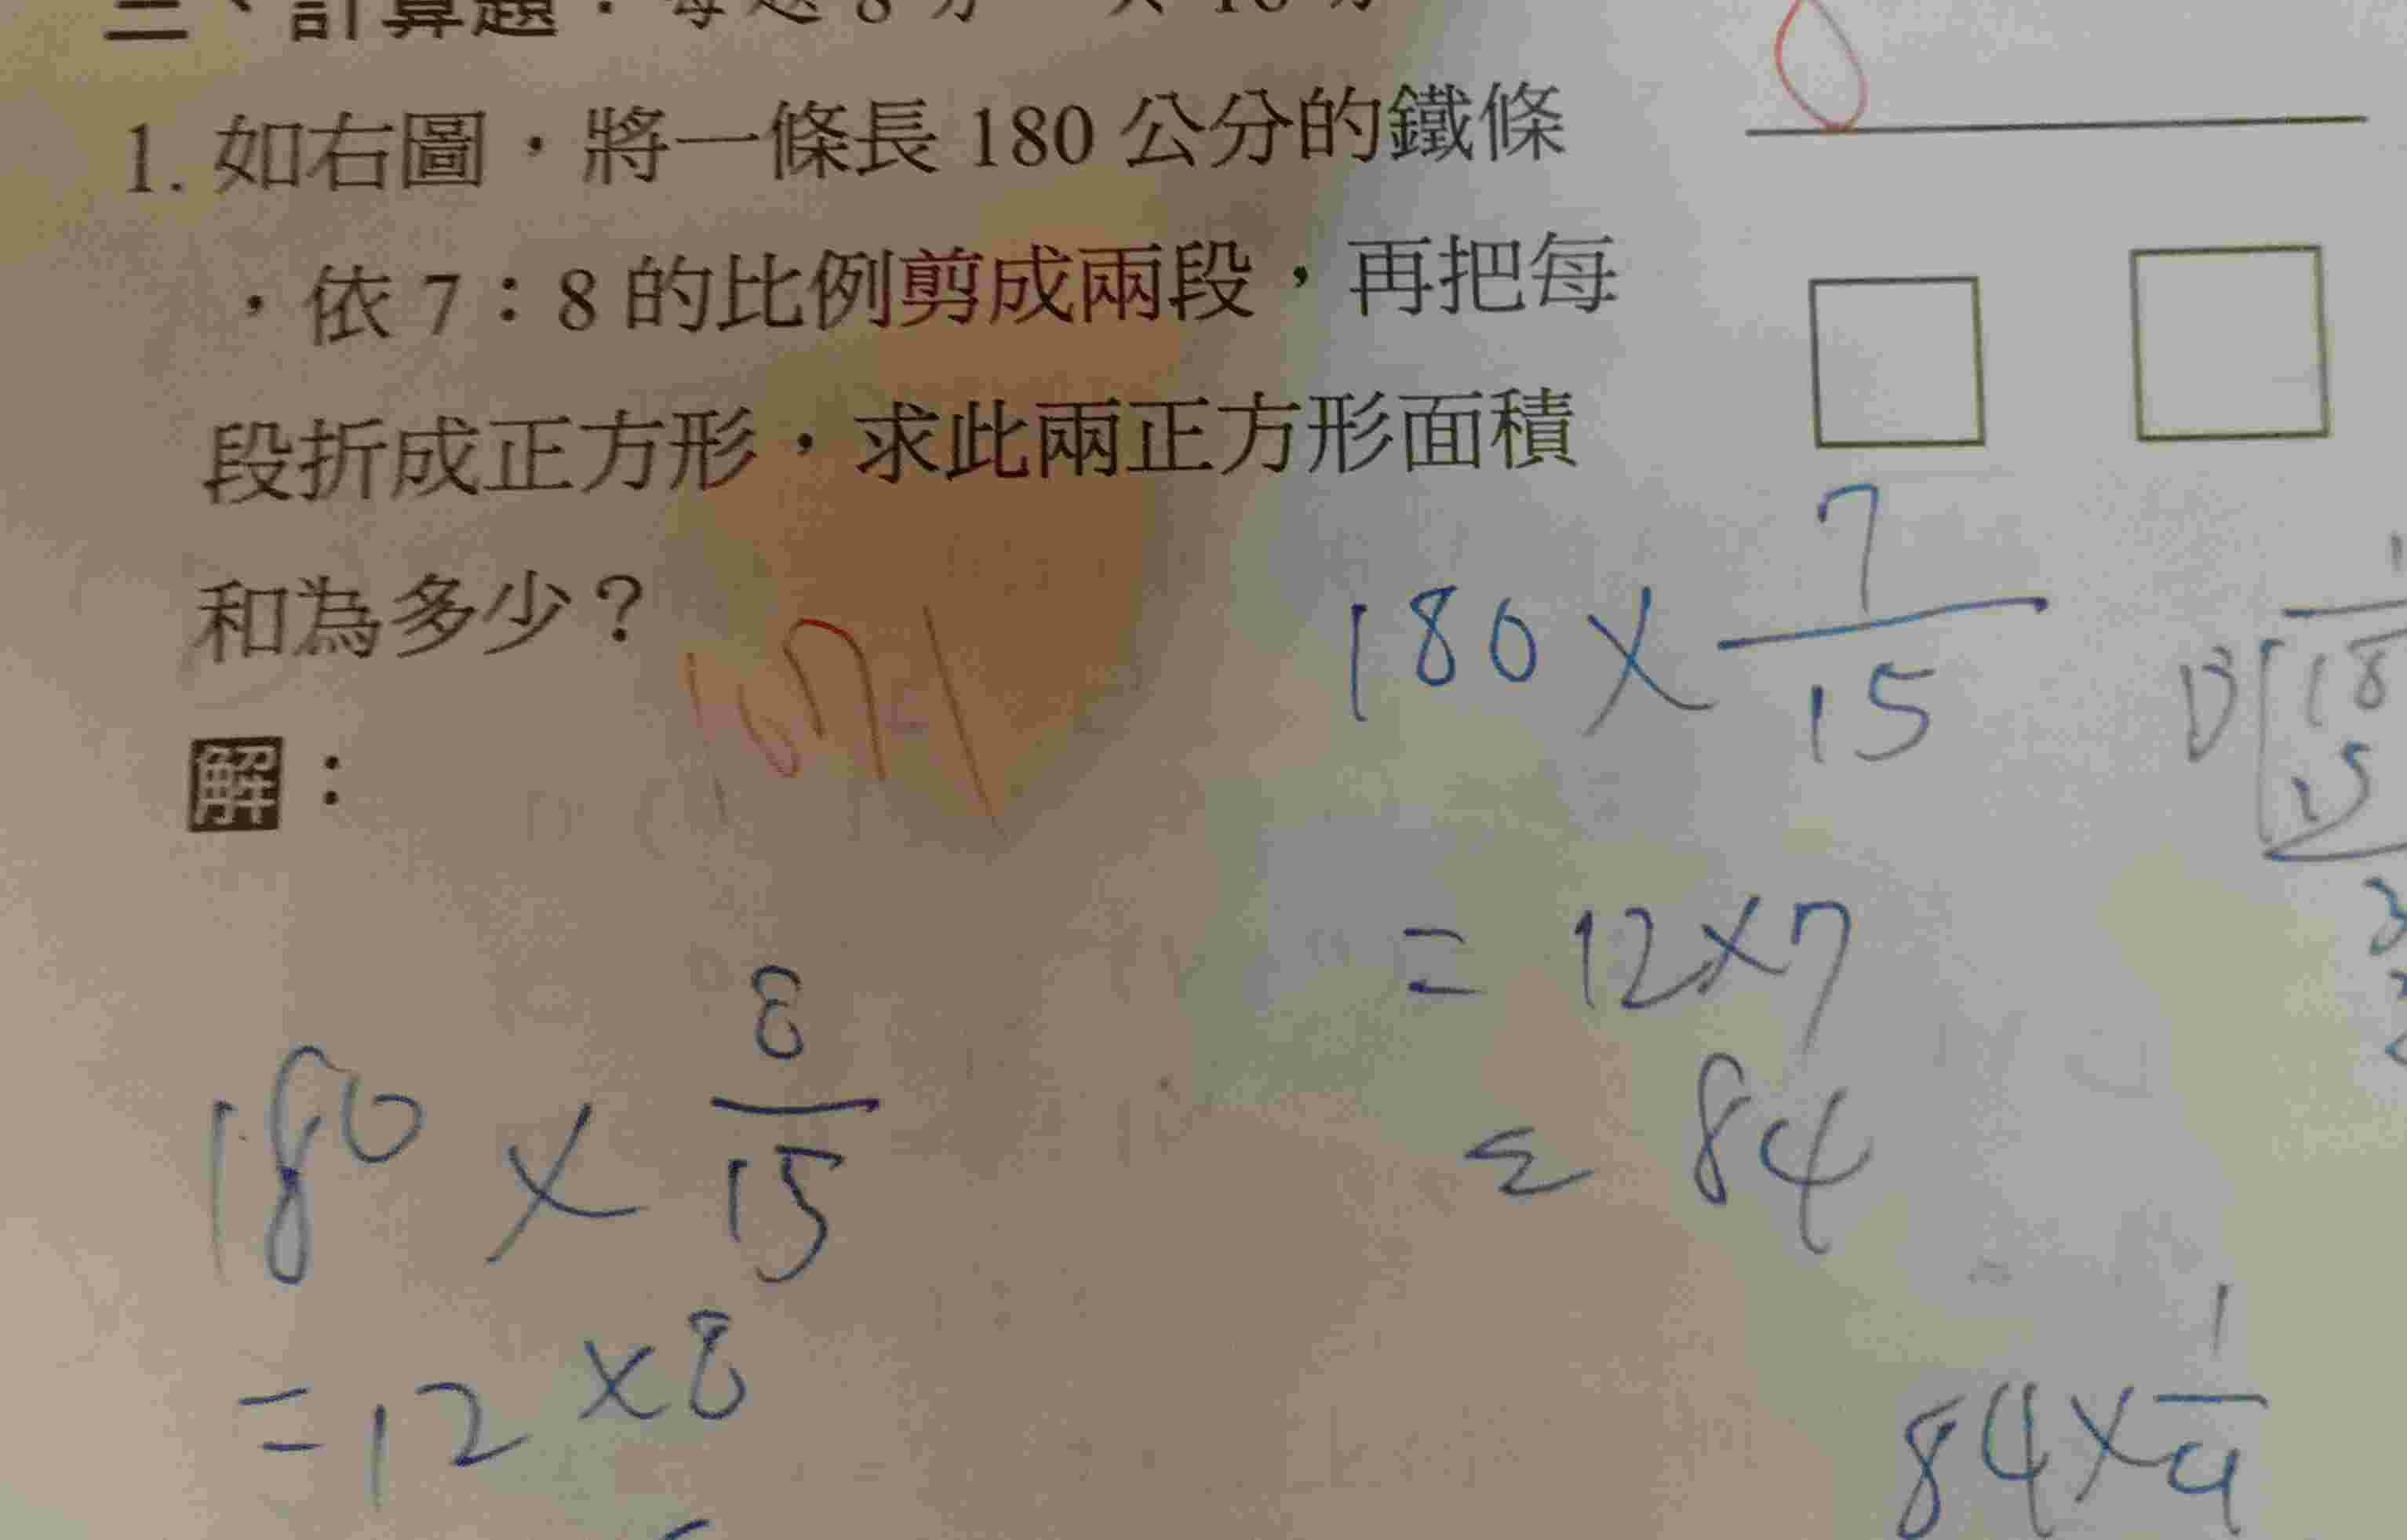 二、計算題：每題 8 分，共 16 分
1. 如右圖，將一條長 180 公分的鐵條
，依 7：8 的比例剪成兩段，再把每
段折成正方形，求此兩正方形面積
和為多少？
解：
180 × 7/15
= 12×7
= 84
84×1/4
180 × 8/15
= 12 ×8